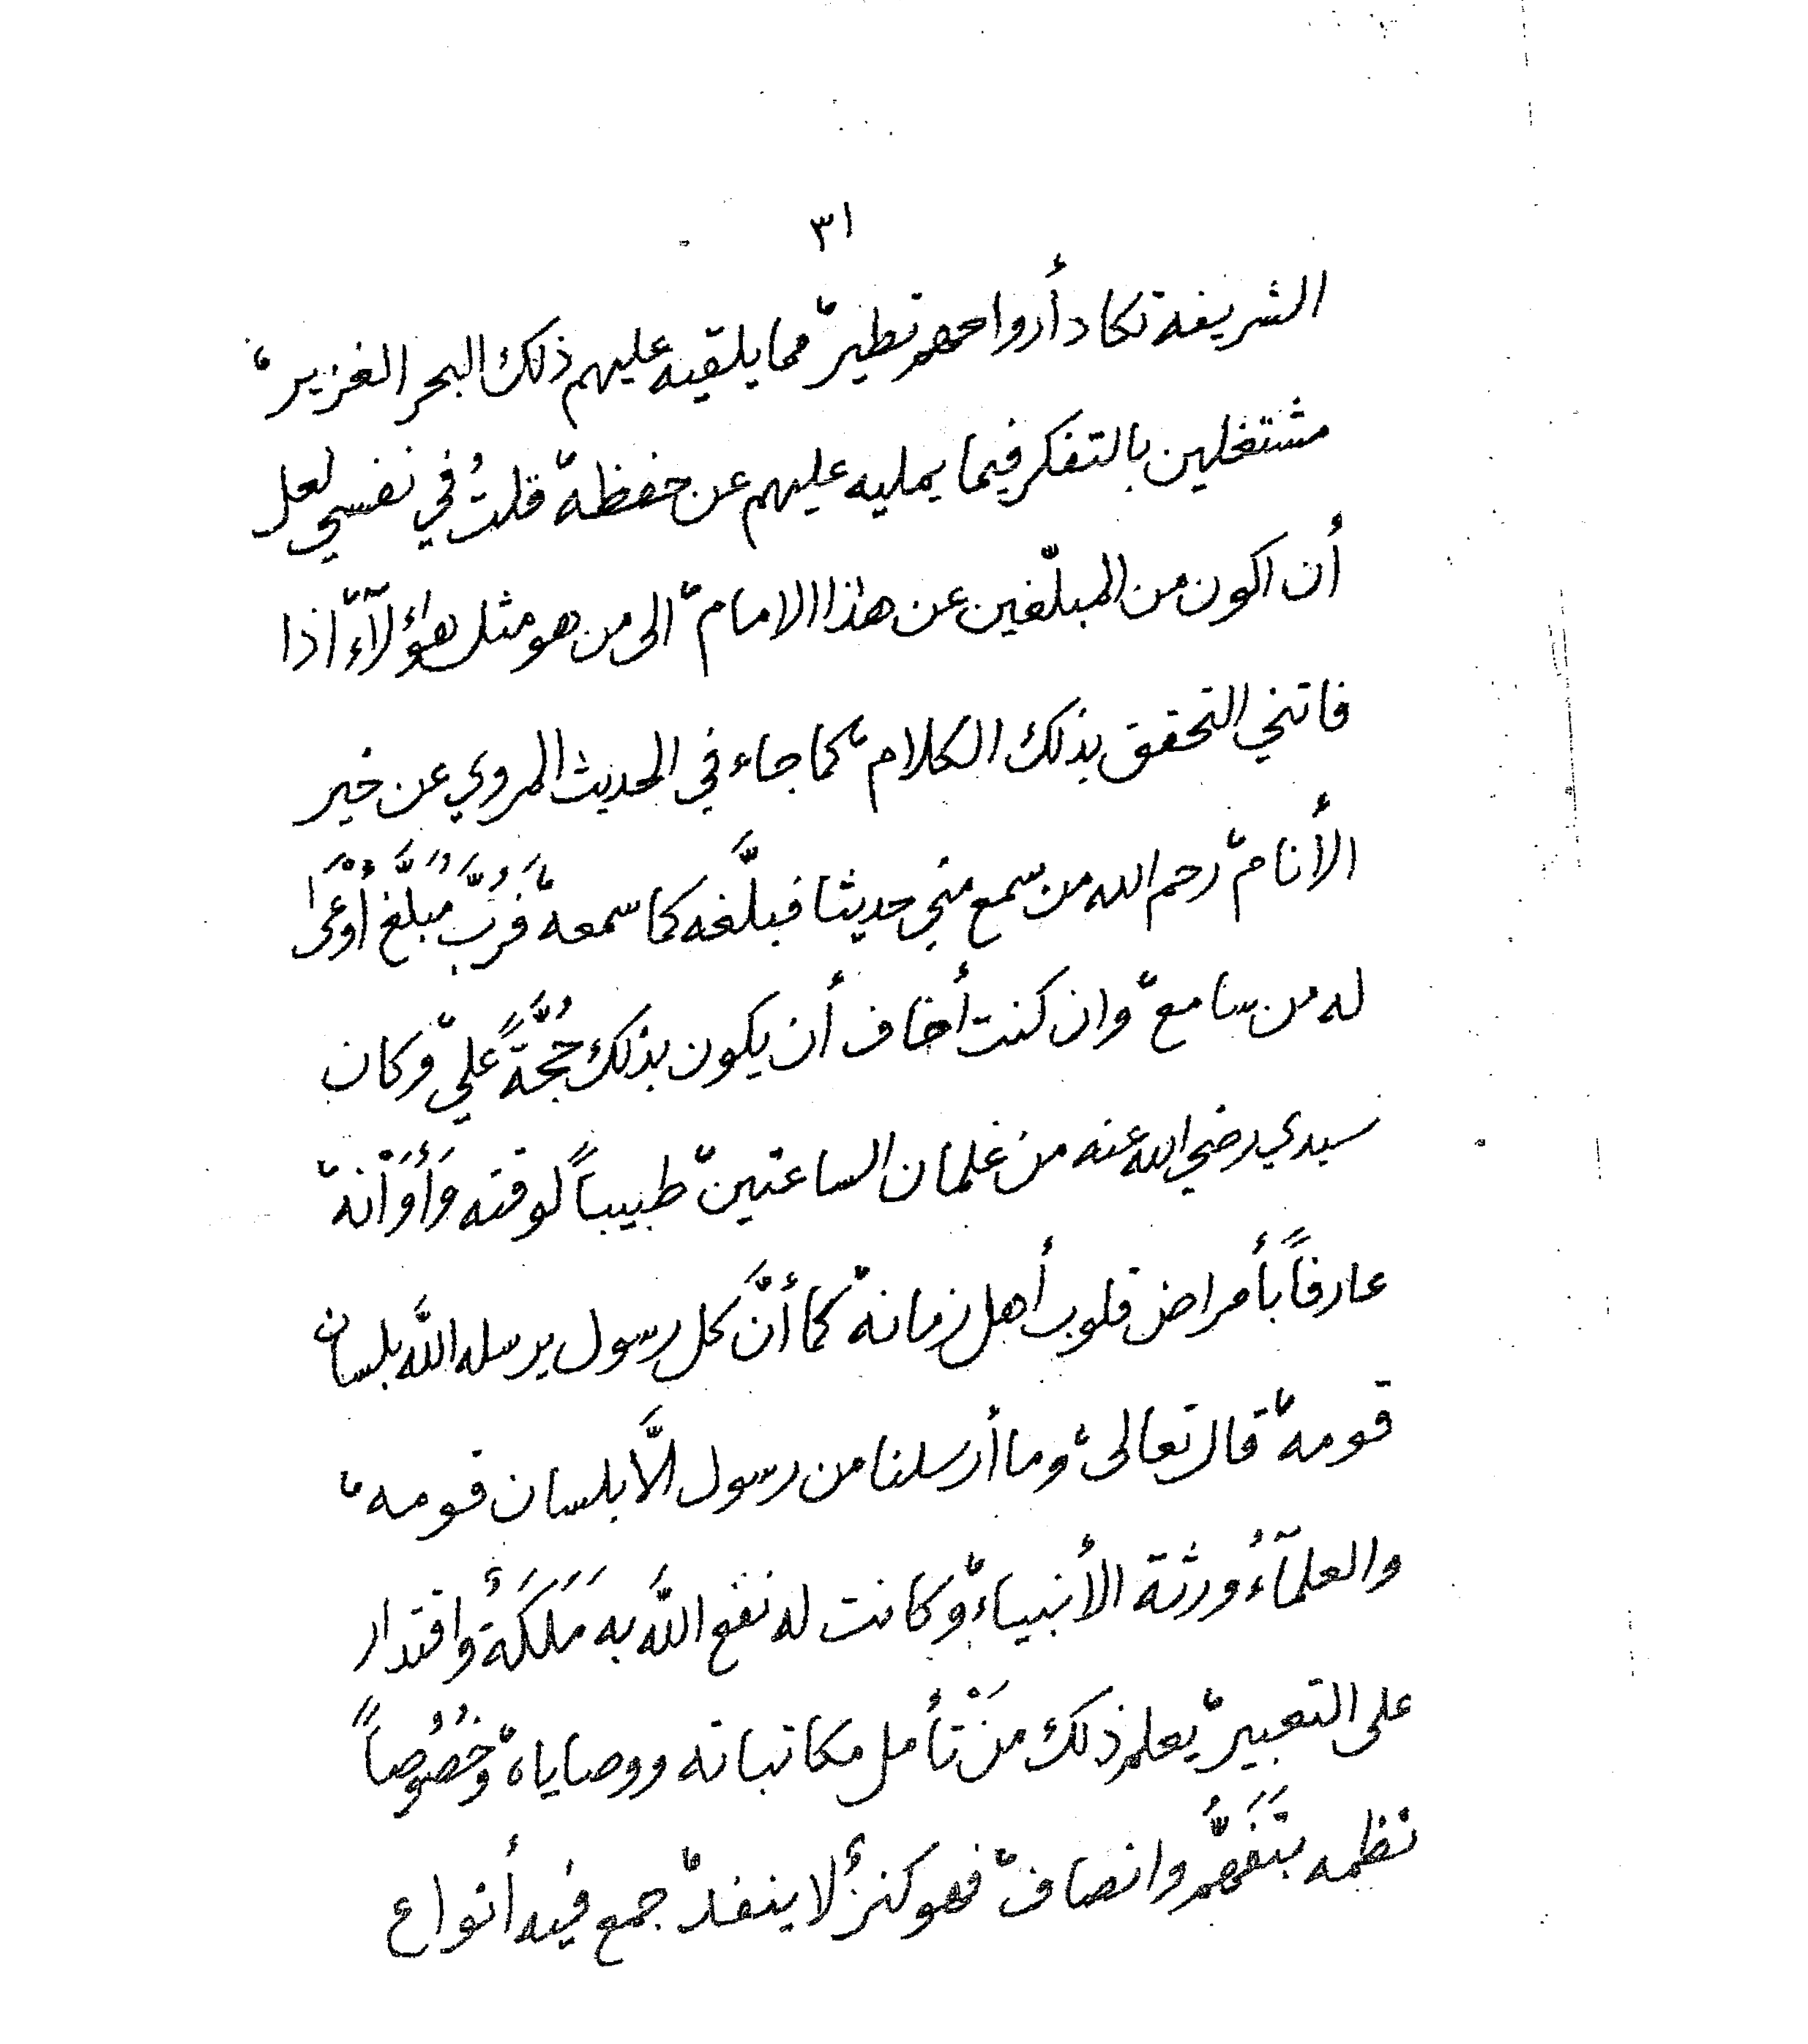 ٣١
الشريفة تكاد أرواحهم تطير، مما يلقيه عليهم ذلك البحر الغزير،
مشتغلين بالتفكر فيما يمليه عليهم عن حفظه، قلتُ في نفسي لعل
أن اكون من المبلّغين عن هذا الامام، الى من هو مثل هؤلآء، اذا
فاتني التحقق بذلك الكلام، كما جاء في الحديث المروي عن خير
الأنام، رحم الله من سمع مني حديثا فبلَّغه كما سمعه، فَرُبَّ مُبَلَّغٍ أَوْعَىٰ
له من سامع، وان كنت أخاف أن يكون بذلك حُجَّةً عليّ، وكان
سيدي رضي الله عنه من غلمان الساعتين، طبيباً لوقته وَأَوَانه،
عارفاً بأمراض قلوب أهل زمانه، كما أنَّ كل رسول يرسله اللَّه بلسان
قومه، قال تعالى، وما أرسلنا من رسول الَّا بلسان قومه،
والعلمآءُ ورثة الأنبياء، وكانت له نفع اللَّه به مَلَكَةٌ واقتدار
على التعبير، يعلم ذلك مَنْ تأمل مكاتباته ووصاياه، وخُصُوصاً
نظمه بتَفَهُّم وانصاف، فهو كنزٌ لا ينفد، جمع فيه أنواع